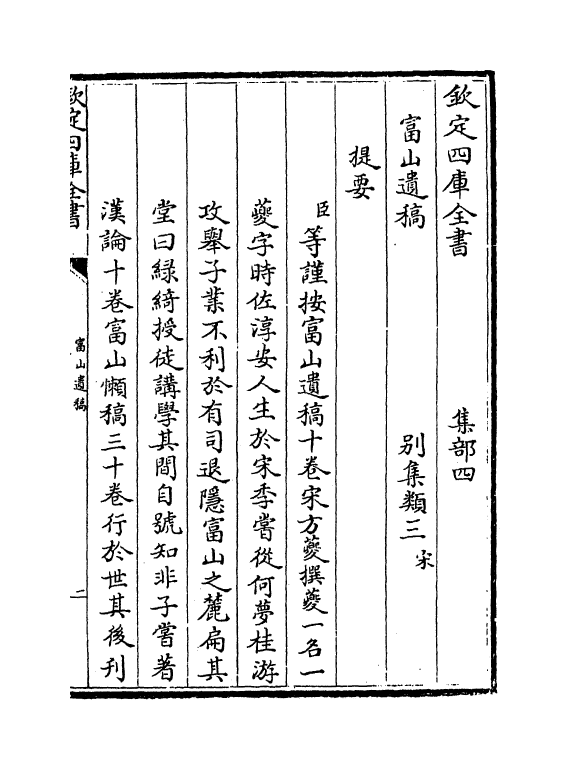 欽定四庫全書　集部四
富山遺稿　别集類三宋
提要
臣等謹按富山遺稿十卷宋方夔撰夔一名一
夔字時佐淳安人生於宋季嘗從何夢桂游
攻舉子業不利於有司退隱富山之麓扁其
堂曰緑綺授徒講學其間自號知非子嘗著
漢論十卷富山懶稿三十卷行於世其後刊
欽定四庫全書
富山遺稿
二